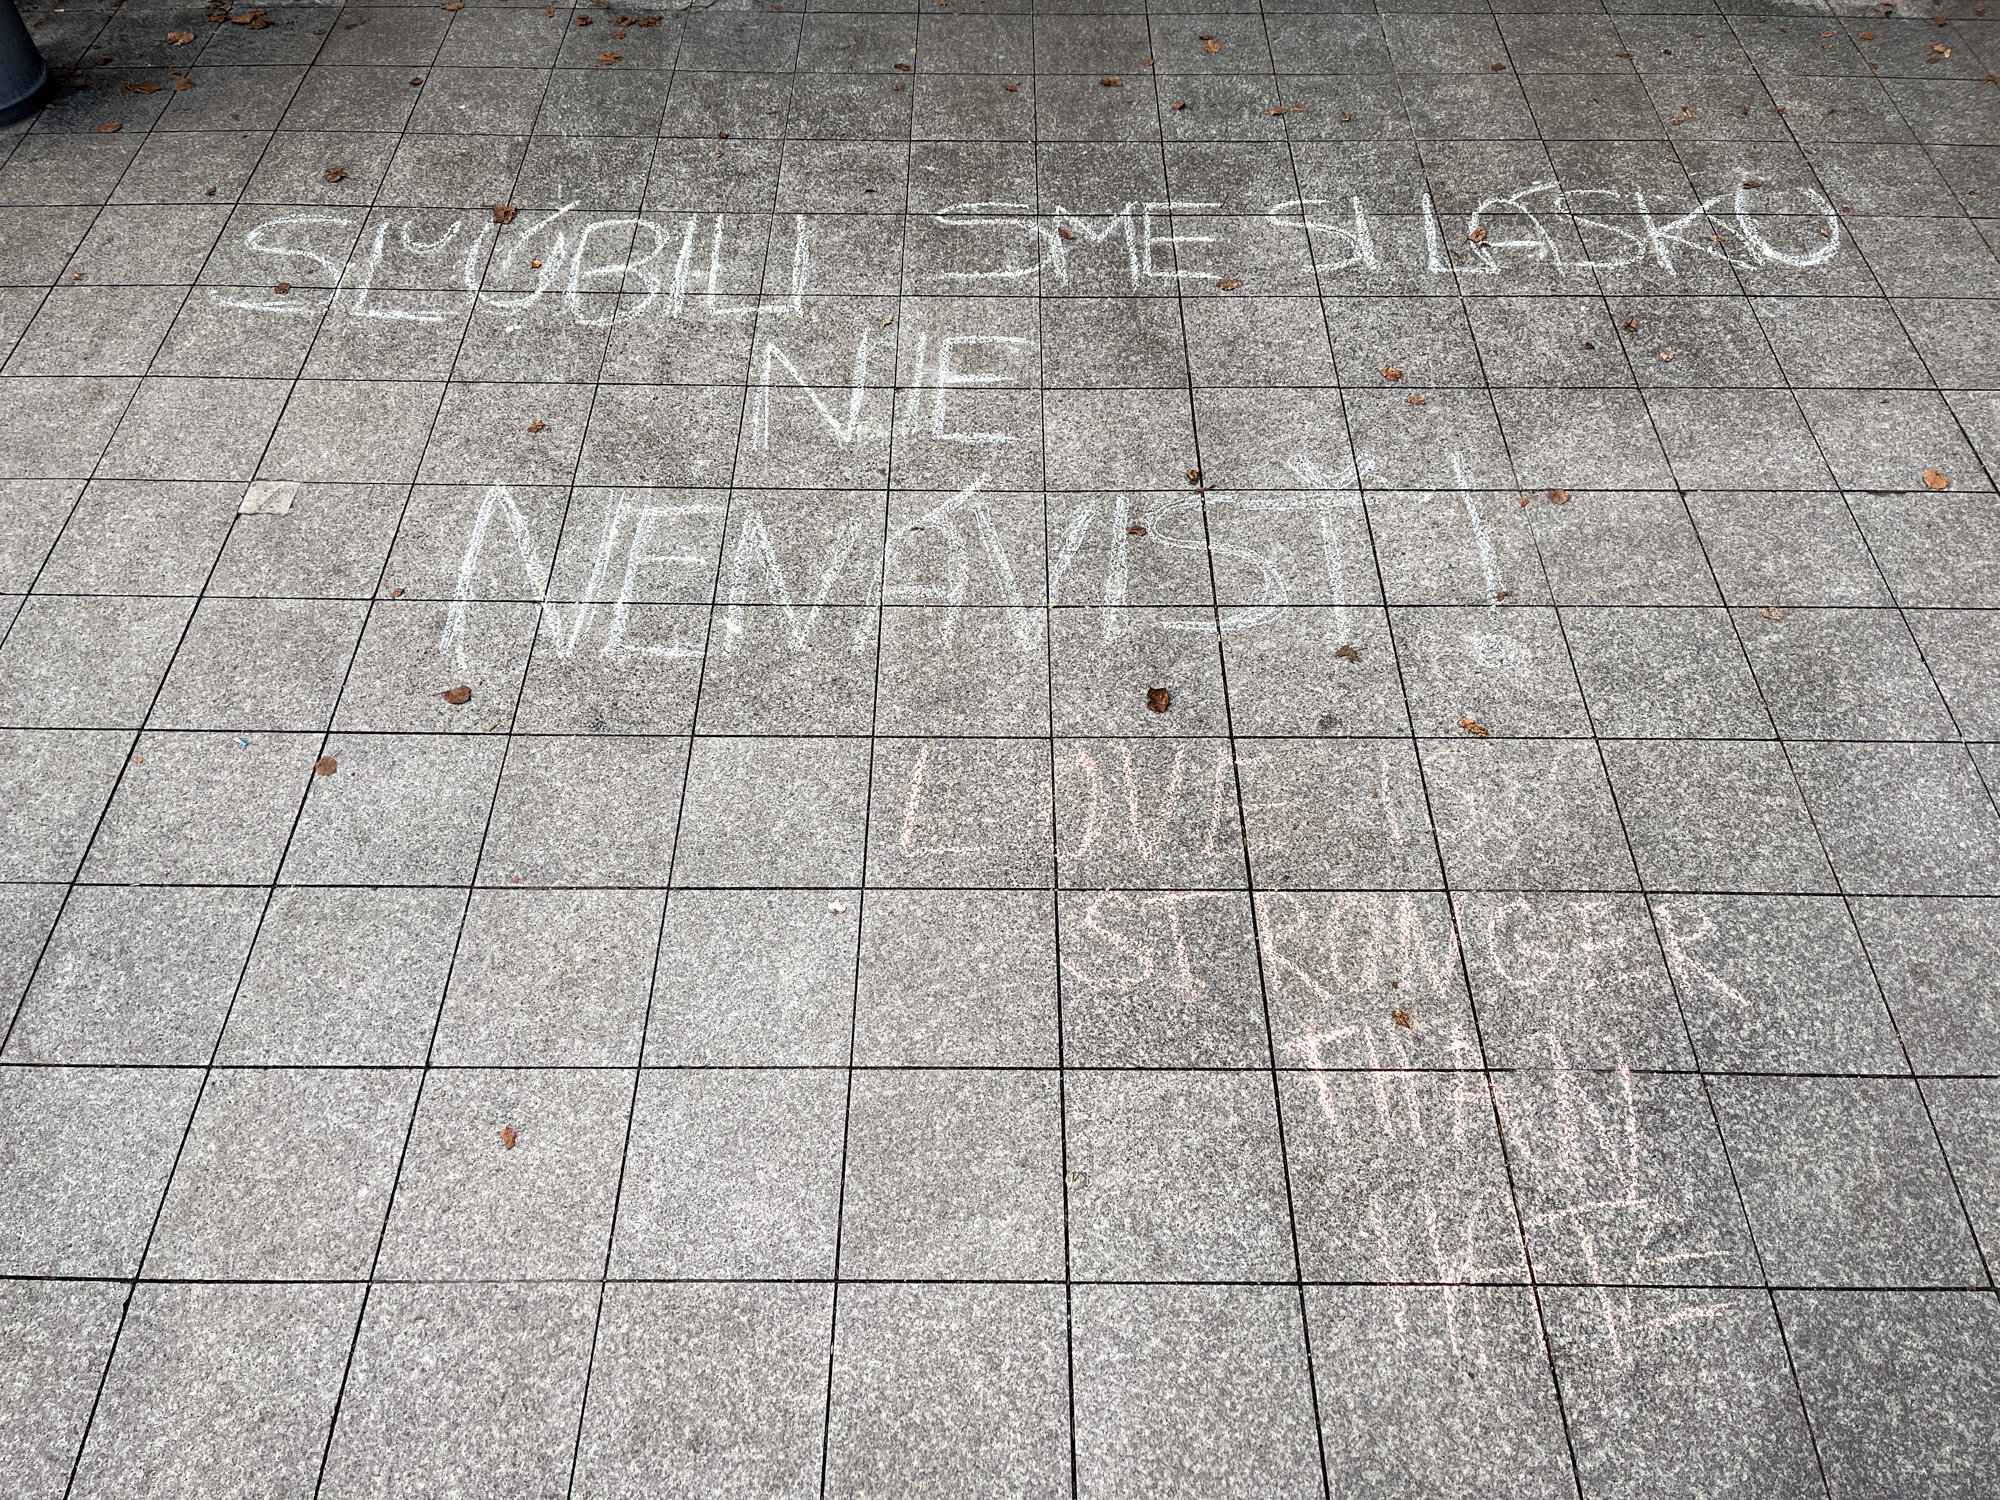 SĽÚBILI SME SI LÁSKU
NIE
NENÁVISŤ!
LOVE IS
STRONGER
THAN
HATE